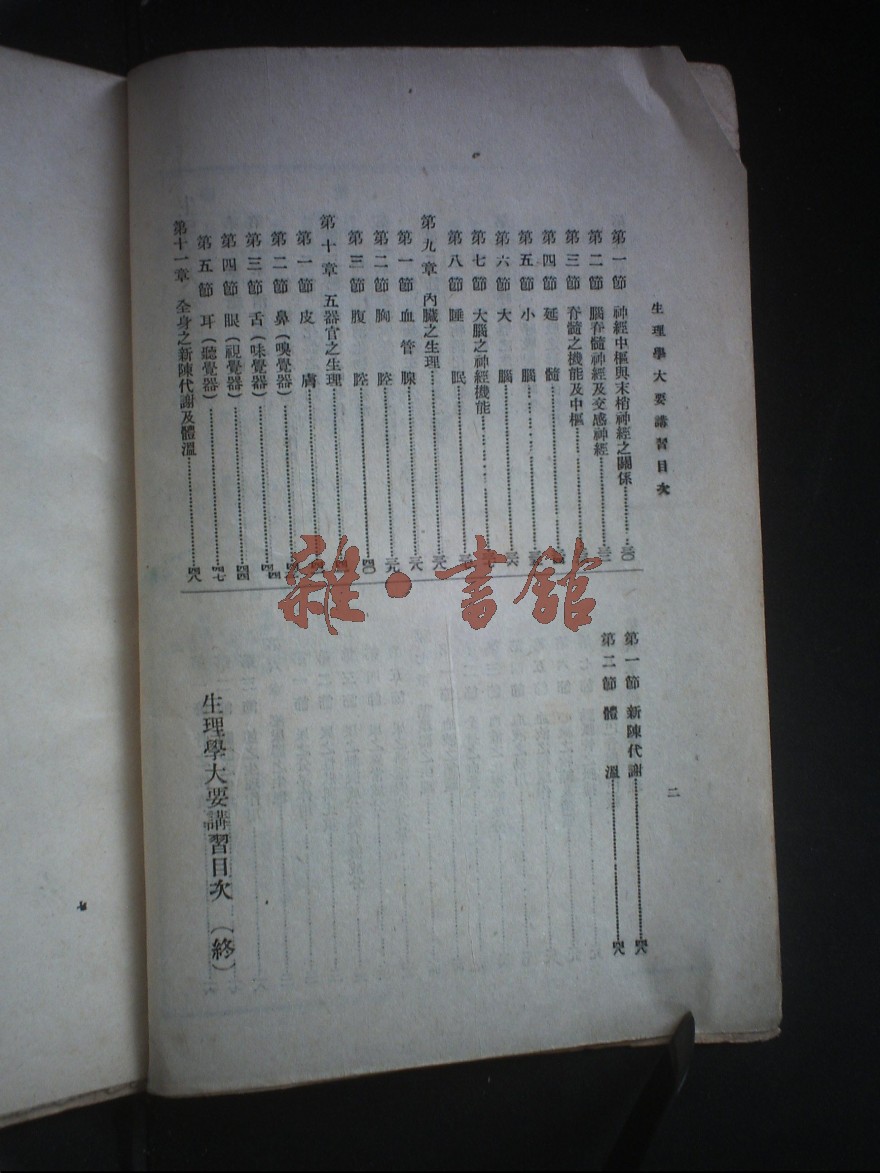 生理學大要講習目次
第一節 神經中樞與末梢神經之關係 三〇
第二節 腦脊髓神經及交感神經 三二
第三節 脊髓之機能及中樞
第四節 延髓
第五節 小腦
第六節 大腦
第七節 大腦之神經機能
第八節 睡眠
第九章 內臟之生理
第一節 血管腺 三八
第二節 胸腔 三九
第三節 腹腔 四〇
第十章 五器官之生理
第一節 皮膚
第二節 鼻(嗅覺器)
第三節 舌(味覺器) 四四
第四節 眼(視覺器) 四四
第五節 耳(聽覺器) 四七
第十一章 全身之新陳代謝及體溫 四八
第一節 新陳代謝 四八
第二節 體溫 四八
生理學大要講習目次(終)
二
雜·書館